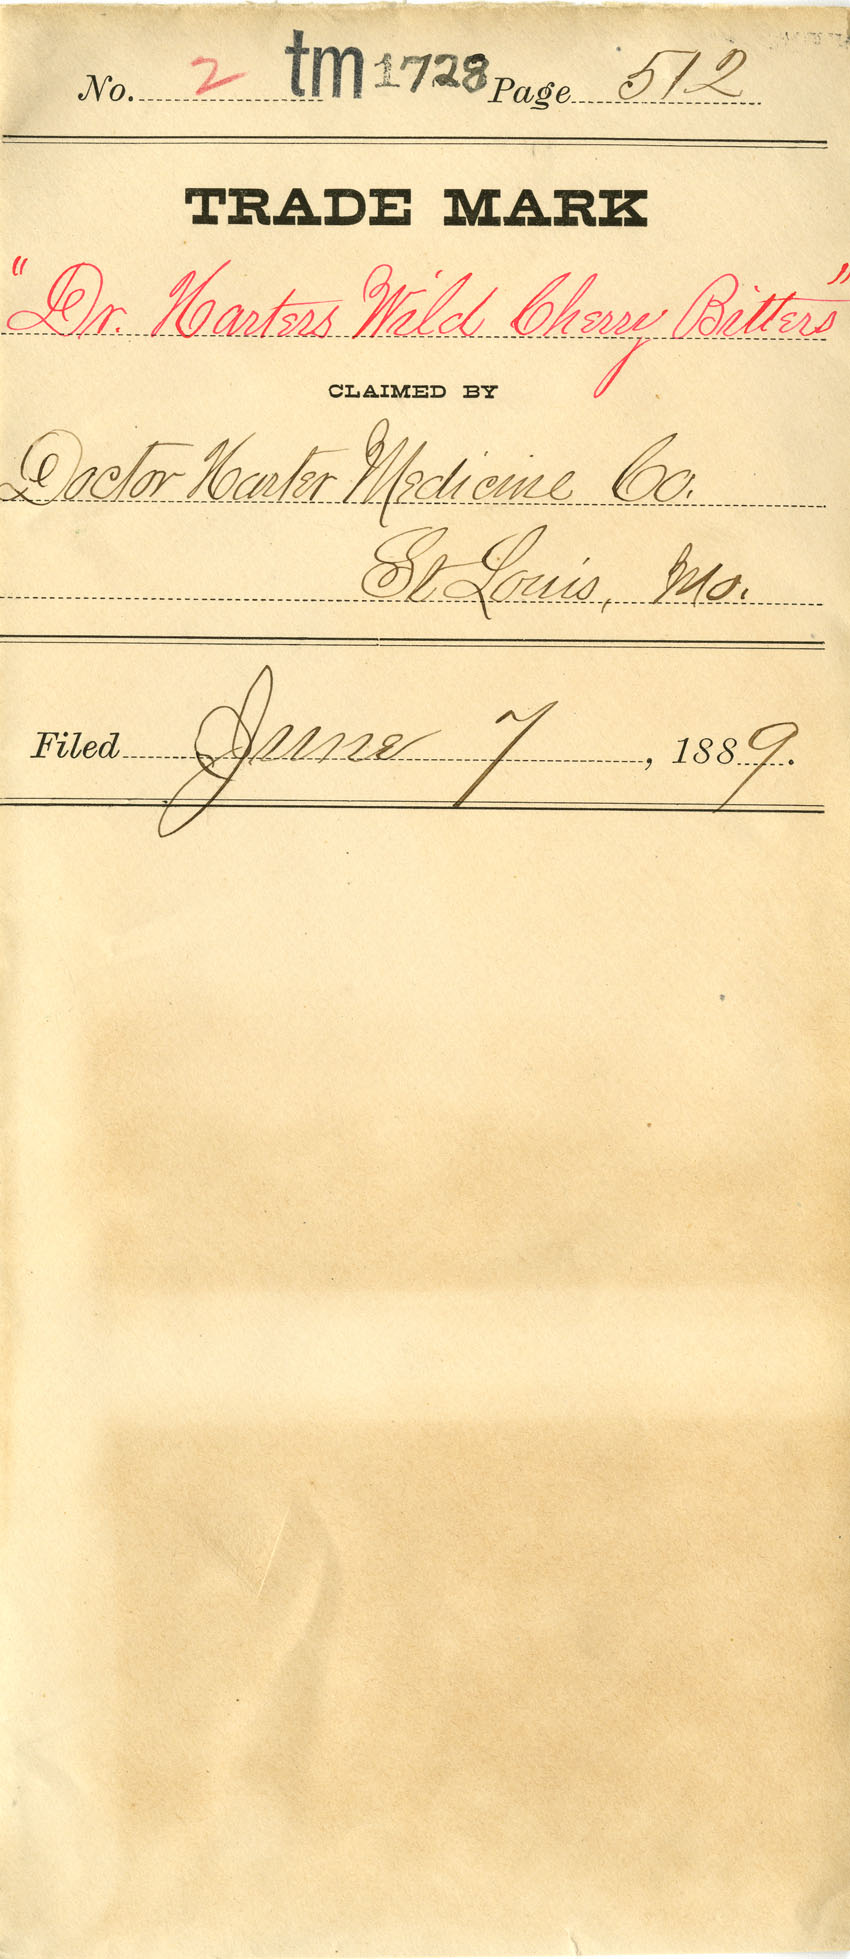 No. 2 tm 1728 Page 512
TRADE MARK
"Dr. Harters Wild Cherry Bitters"
CLAIMED BY
Doctor Harter Medicine Co.
St Louis, Mo.
Filed June 7, 1889.